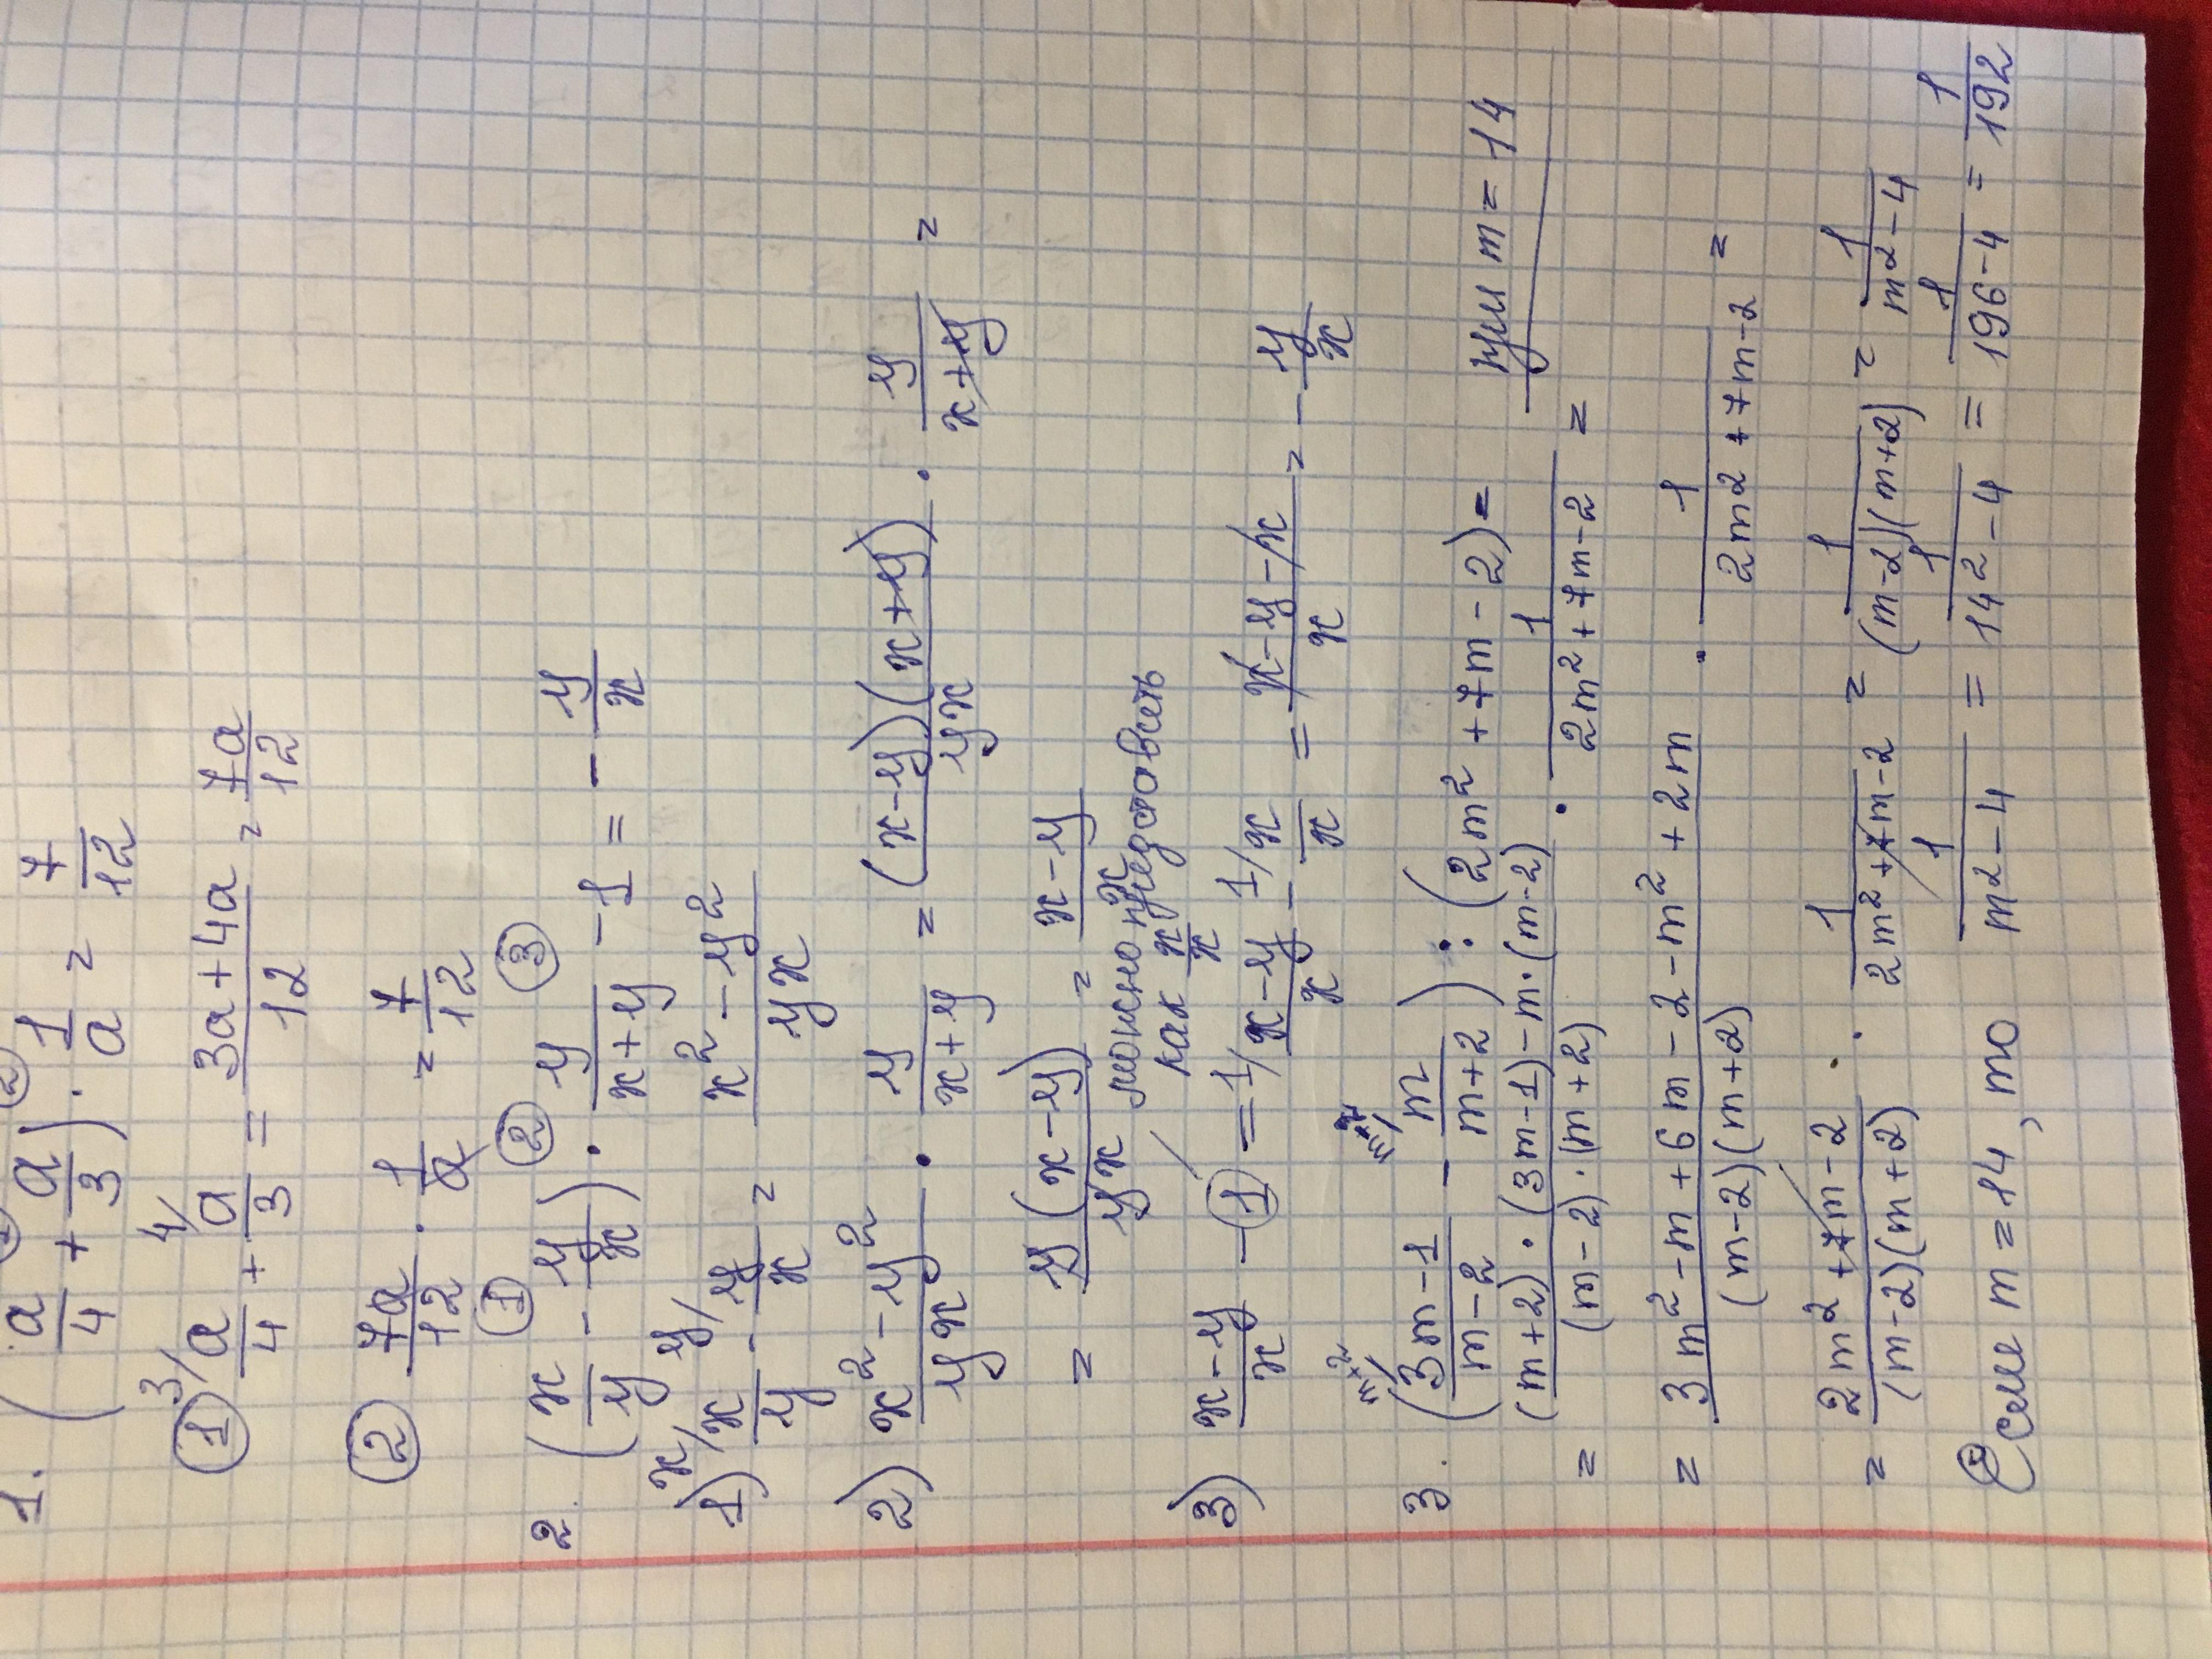 1. (a/4 + a/3) · 1/a = 7/12
① 3/ a/4 + 4/ a/3 = (3a+4a)/12 = 7a/12
② 7a/12 · 1/a = 7/12
① ② ③
2. (x/y - y/x) · y/(x+y) - 1 = - y/x
1) x/ x/y - y/ y/x = (x² - y²)/(yx)
2) (x² - y²)/(yx) · y/(x+y) = ((x-y)(x+y))/(yx) · y/(x+y) =
= (y(x-y))/(yx) = (x-y)/x
можно представить
как x/x
3) (x-y)/x - ① = 1/ (x-y)/x - 1/ x/x = (x-y-x)/x = - y/x
3. (m+2/ (3m-1)/(m-2) - m/(m+2)) : (2m² + 7m - 2) = при m = 14
= ((m+2)·(3m-1) - m·(m-2))/((m-2)·(m+2)) · 1/(2m²+7m-2) =
= (3m² - m + 6m - 2 - m² + 2m)/((m-2)(m+2)) · 1/(2m2+7m-2) =
= (2m² + 7m - 2)/((m-2)(m+2)) · 1/(2m²+7m-2) = 1/((m-2)(m+2)) = 1/(m2-4)
Если m = 14, то 1/(m2-4) = 1/(14²-4) = 1/(196-4) = 1/192